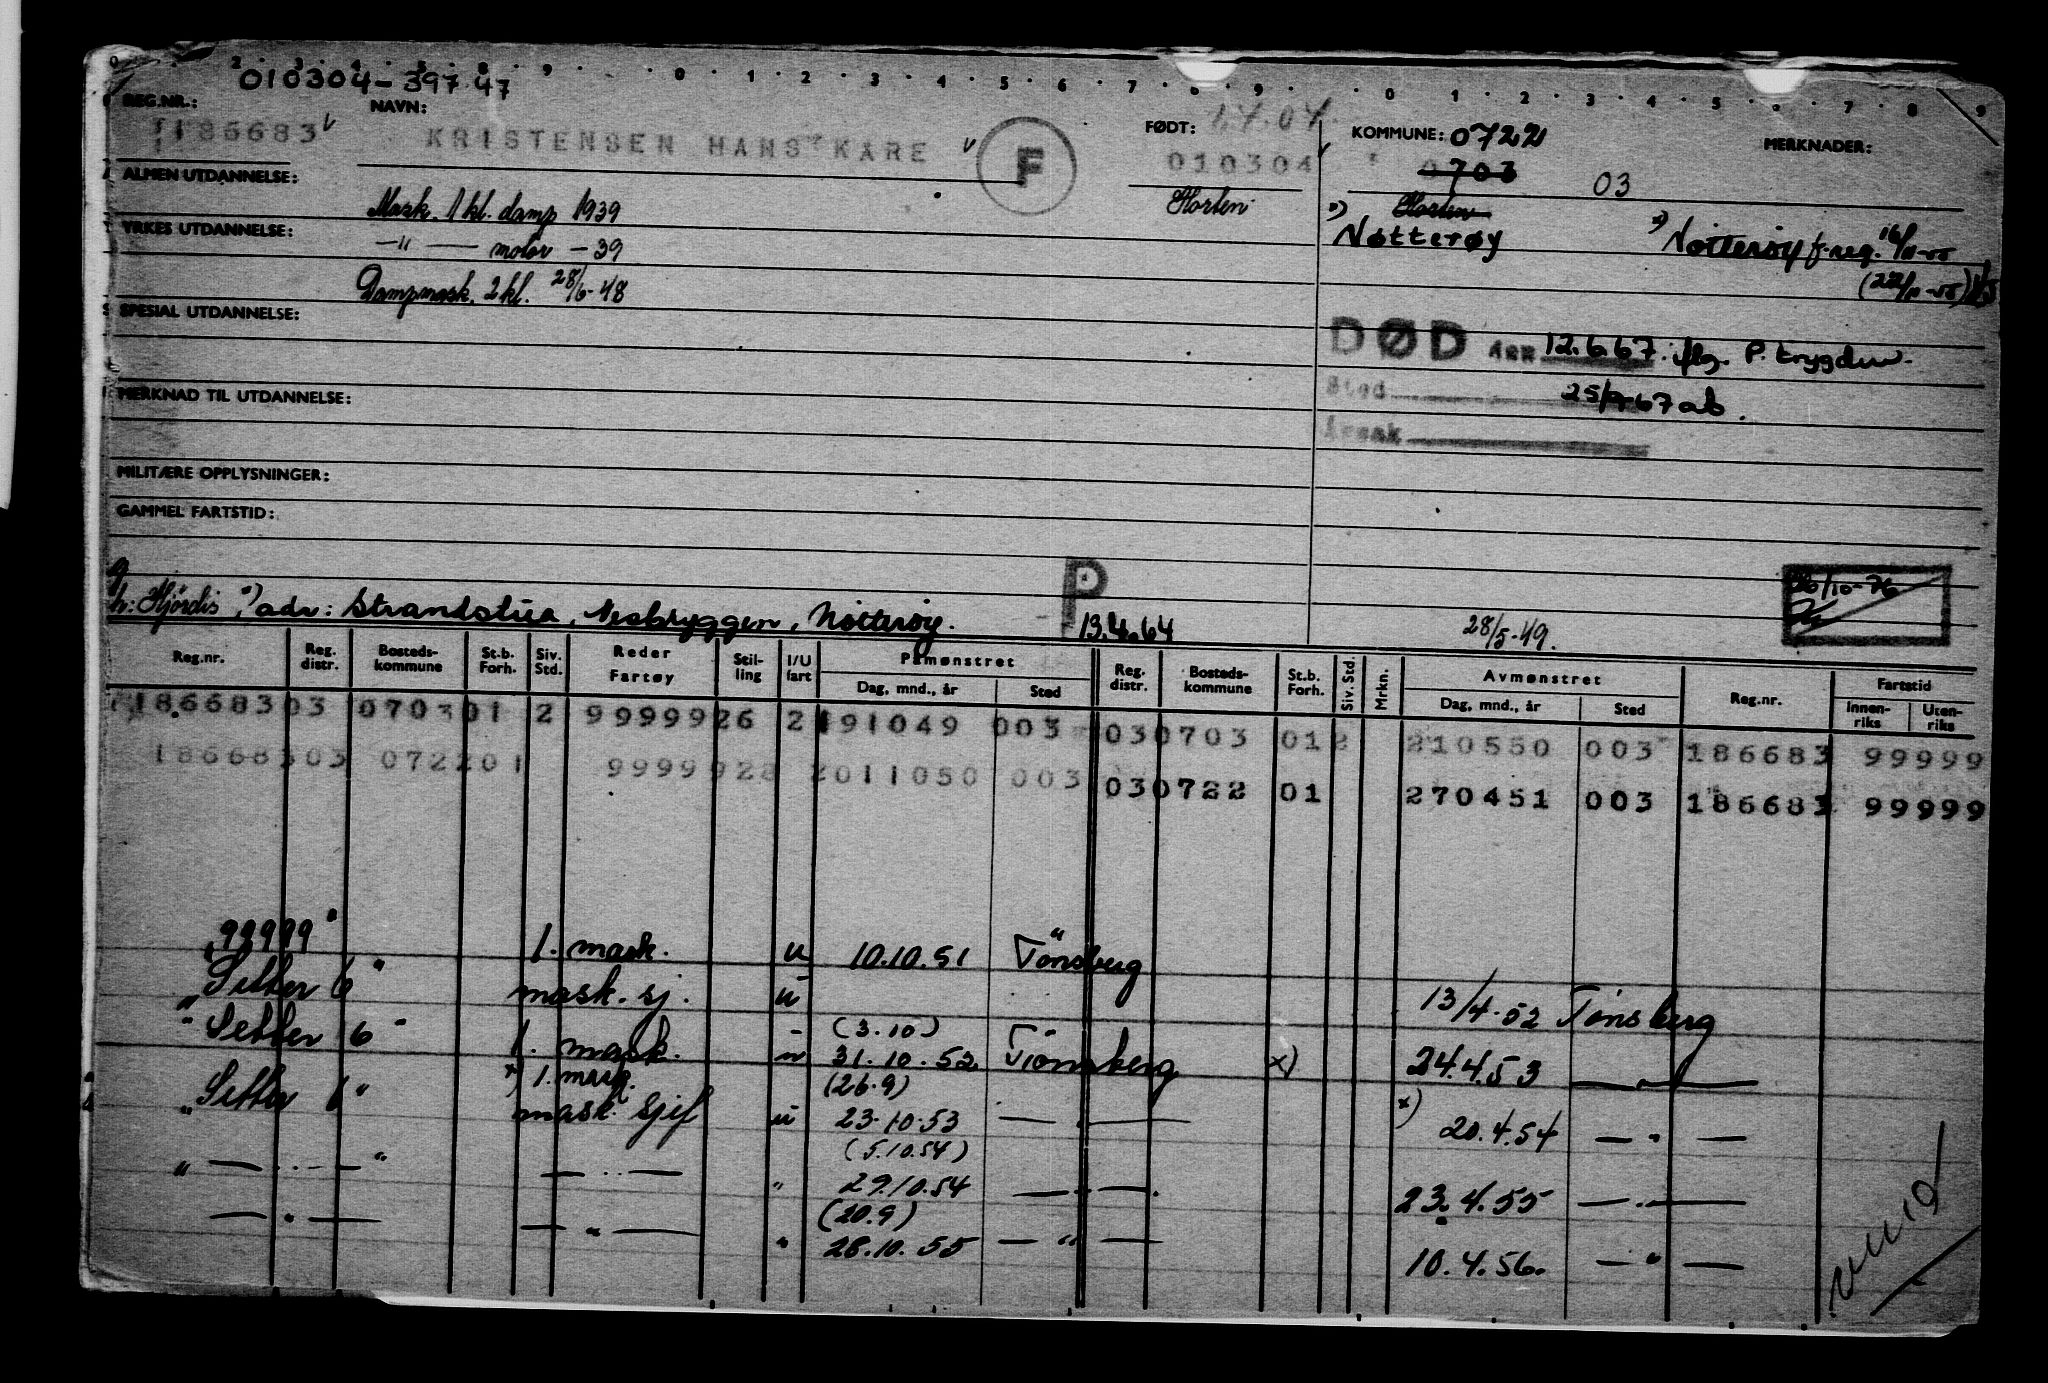 010304-397.47
REG.NR.: NAVN: FØDT: KOMMUNE: 0722 MERKNADER:
186683 KRISTENSEN HANS KARE F 010304 0703 03
ALMEN UTDANNELSE: Mask. 1 kl. damp 1939 Horten Horten
YRKES UTDANNELSE: —"— motor -39 x) Nøtterøy x) Nøtterøy f.reg. 16/11-55
Dampmask. 2 kl. 28/6-48
SPESIAL UTDANNELSE:
DØD 12.6.67. iflg. P. trygden.
Sted 25/9-67 ab.
Årsak
MERKNAD TIL UTDANNELSE:
MILITÆRE OPPLYSNINGER:
GAMMEL FARTSTID:
P 26/10-76
h: Hjördis, x) adr: Strandstua, Nesbryggen, Nøtterøy. 13.4.64 28/5-49.
Reg.nr. Reg. distr. Bosteds-kommune St.b. Forh. Siv. Std. Reder Fartøy Stil-ling I/U fart Påmønstret Dag, mnd., år Sted Reg. distr. Bosteds-kommune St.b. Forh. Siv. Std. Mrkn. Avmønstret Dag, mnd., år Sted Reg.nr. Fartstid Innen-riks Uten-riks
186683 03 0703 01 2 99999 26 2 191049 003 03 0703 01 2 210550 003 186683 99999
186683 03 0722 01 99999 28 2 011050 003 03 0722 01 270451 003 186683 99999
99999
1. mask. u 10.10.51 Tönsberg
"Setter 6" mask. sj. u 13/4.52 Tönsberg
"Setter 6" 1. mask. u (3.10) 31.10.52 Tiönsberg x) 24.4.53 —"—
"Setter 6" x) 1. mask. mask. sjef u (26.9) 23.10.53 —"— x) 20.4.54 —"—
"—"—" —"— " (5.10.54) 29.10.54 —"— 23.4.55 —"—
—"— —"— " (20.9) 28.10.55 —"— 10.4.56. —"—